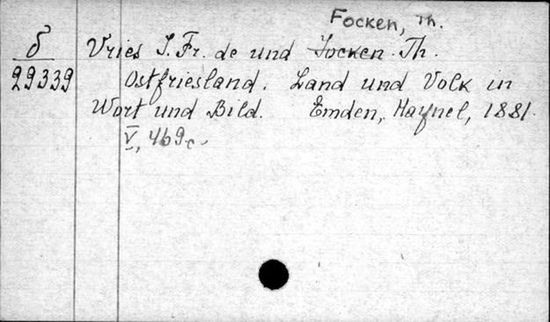 Focken, Th.
б Vries J. Fr. de und Focken Th.
29339 Ostfriesland. Land und Volk in
Wort und Bild. Emden, Haynel, 1881.
V, 469 c.